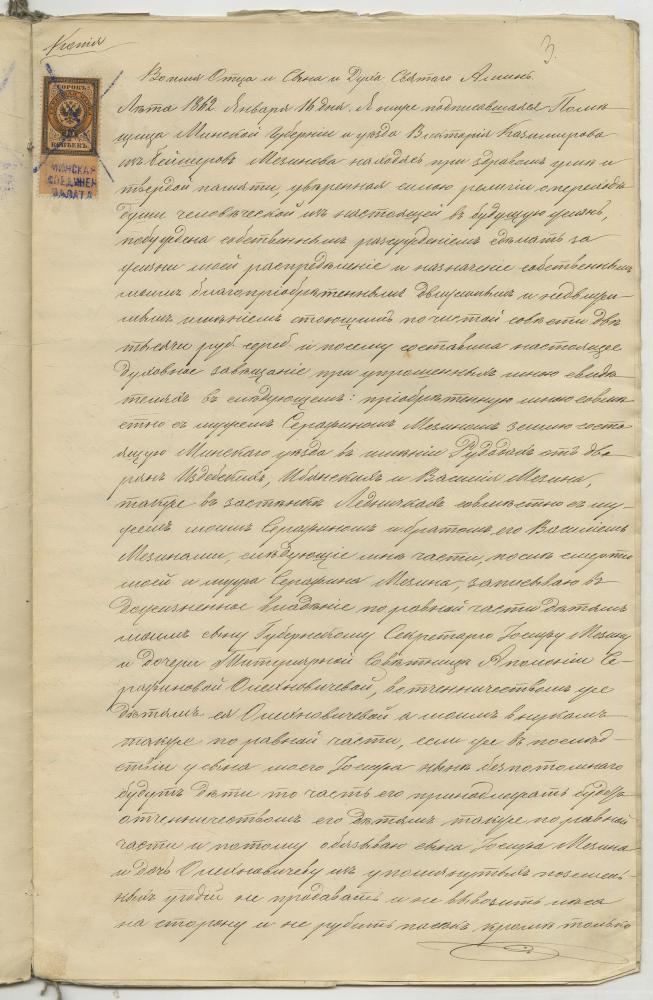 Копія
3.
СОРОКЪ
КОПѢЕКЪ
МИНСКАЯ
СОЕДИНЕН
ПАЛАТА
Во имя Отца и Сына и Духа Святаго Аминь.
Лѣта 1862 Января 16 дня. Я ниже подписавшаяся Помѣ-
щица Минской Губерніи и уѣзда Викторія Казимирова
изъ Мезинова находясь при здравомъ умѣ и
твердой памяти, увѣренная силою религіи о переходѣ
души человѣческой изъ настоящей въ будущую жизнь,
побуждена собственнымъ разсужденіемъ сдѣлать за
жизни моей распредѣленіе и назначеніе собственнымъ
моимъ благопріобрѣтеннымъ движимымъ и недвижи-
мымъ имѣніемъ стоющимъ по чистой совѣсти двѣ
тысячи руб. сереб. и посему составила настоящее
Духовное завѣщаніе при упрошенныхъ мною свидѣ
теляхъ въ слѣдующемъ: пріобрѣтенную мною совмѣ
стно съ мужемъ Серафиномъ Мезиномъ землю состо
ящую Минскаго уѣзда въ имѣніи отъ Дво
рянъ и Василія Мезина,
также въ застѣнкѣ совмѣстно съ му-
жемъ моимъ Серафиномъ и братомъ его Василіемъ
Мезинами, слѣдующіе мнѣ части, послѣ смерти
моей и мужа Серафина Мезина, записываю въ
Дожизненное владѣніе по равной части Дѣтямъ
моимъ сыну Губернскому Секретарю Іосифу Мезину
и дочери Титулярной Совѣтницѣ Аполоніи Се-
рафиновой Олехновичевой, вотченничествомъ же
Дѣтямъ ея Олехновичевой а моимъ внукамъ
также по равной части, если же въ послѣд-
ствіи у сына моего Іосифа нынѣ безпотомнаго
будутъ дѣти то часть его принадлежать будетъ
отченничествомъ его дѣтямъ также по равной
части и потому обязываю сына Іосифа Мезина
и дочь Олехновичеву изъ упомянутыхъ поземель-
ныхъ угодій не продавать и не вывозить лѣса
на сторону и не рубить пасѣкъ, кромѣ только